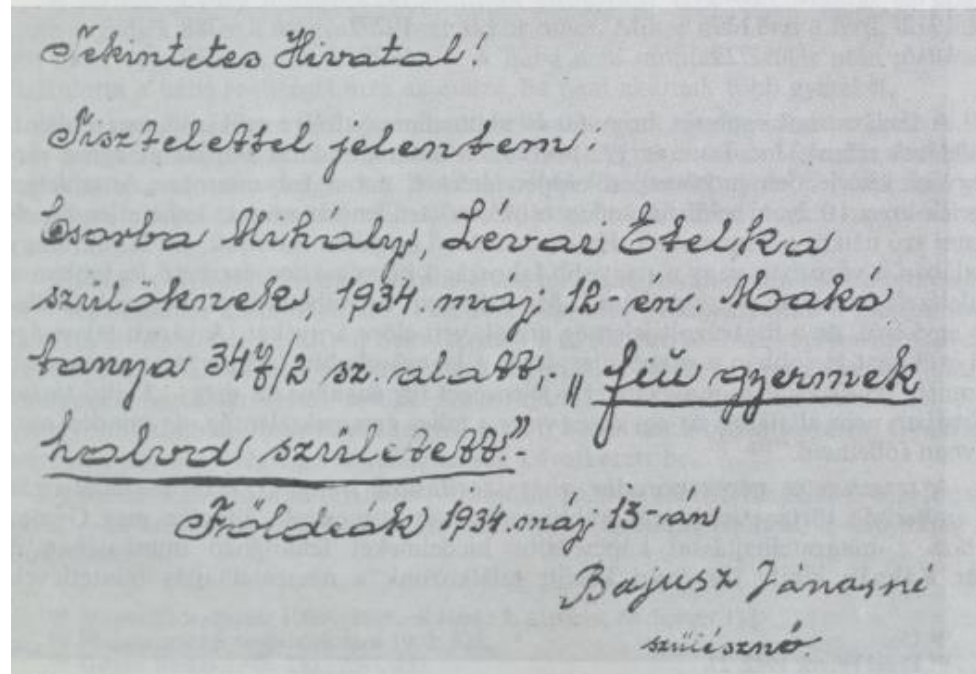 Tekintetes Hivatal!
Tisztelettel jelentem!
Csorba Mihály, Lévai Etelka
szülőknek, 1934. maj. 12-en. Makó
tanya 34 /2 sz. alatt,- „fiú gyermek
halva született."
Földeák 1934. maj 13-án
Bajusz Jánosné
szülésznő.